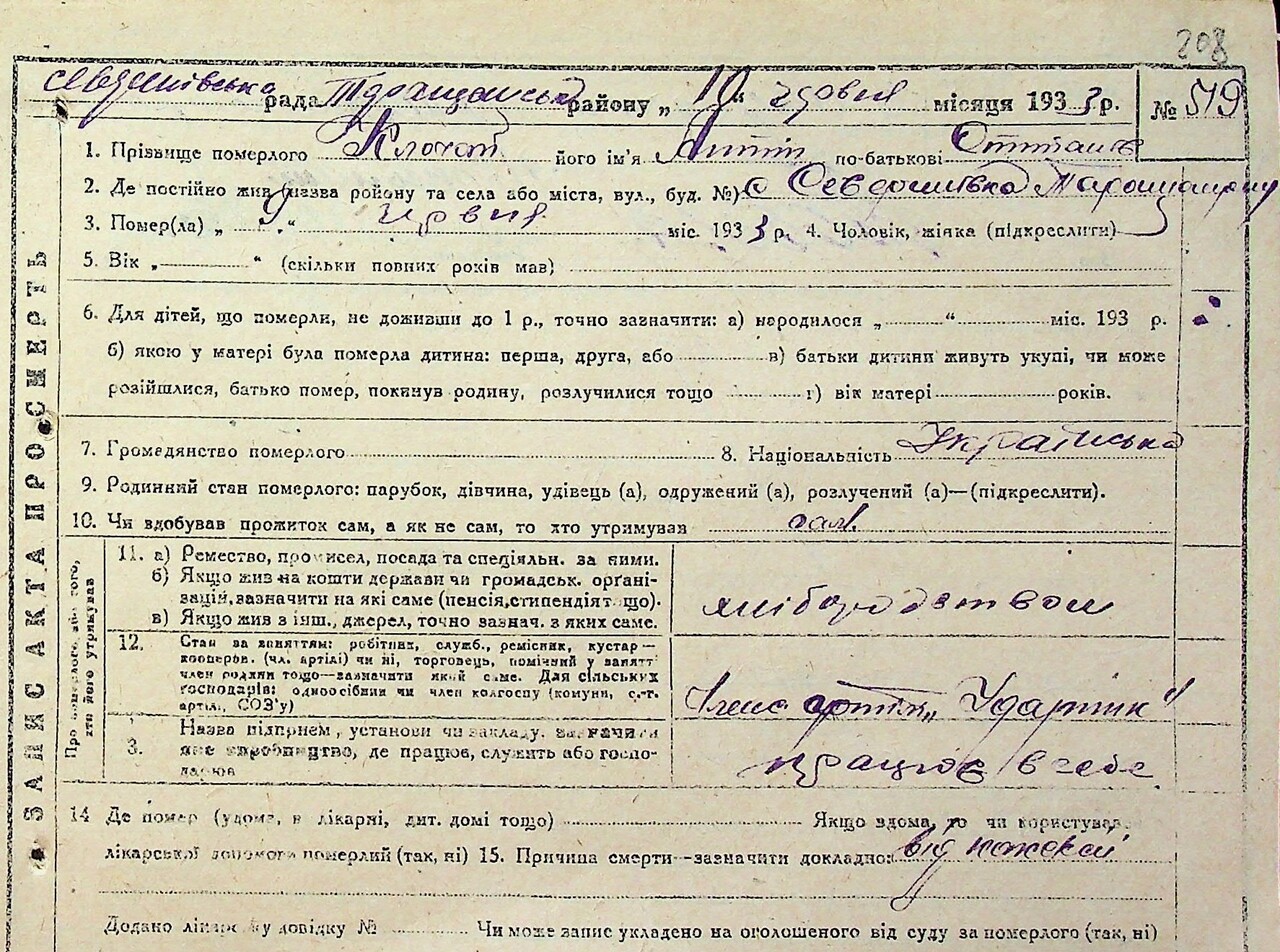 208
рада Таращанськ району „ 10 “ червня місяця 1933 р. № 519
1. Прізвище померлого його ім'я по-батькові
2. Де постійно жив (назва ройону та села або міста, вул., буд. №) с
3. Помер(ла) „ 9 “ червня міс. 1933 р. 4. Чоловік, жінка (підкреслити)
5. Вік „ “ (скільки повних років мав)
6. Для дітей, що померли, не доживши до 1 р., точно зазначити: а) народилося „ “ міс. 193 р.
б) якою у матері була померла дитина: перша, друга, або в) батьки дитини живуть укупі, чи може
розійшлися, батько помер, покинув родину, розлучилися тощо г) вік матері років.
7. Громадянство померлого 8. Національність Українська
9. Родинний стан померлого: парубок, дівчина, удівець (а), одружений (а), розлучений (а)—(підкреслити).
10. Чи здобував прожиток сам, а як не сам, то хто утримував сам.
11. а) Ремество, промисел, посада та спеціяльн. за ними.
б) Якщо жив на кошти держави чи громадськ. орґані-
зацій, зазначити на які саме (пенсія, стипендія т що).
в) Якщо жив з інш., джерел, точно зазнач. з яких саме.
хліборобством
12. Стан за заняттям: робітник, служб., ремісник, кустар—
кооперов. (чл. артілі) чи ні, торговець, помічний у занятті
член родини тощо—зазначити який саме. Для сільських
господарів: одноосібник чи член колгоспу (комуни, с.-г.
артілі, СОЗ'у)
Член артілі „Ударник“
3. Назва підприєм, установи чи закладу. зазначити
яке виробництво, де працює, служить або госпо-
дарює
працює в себе
14 Де помер (удома, в лікарні, дит. домі тощо) Якщо вдома, то чи користував
лікарської допомоги померлий (так, ні) 15. Причина смерти—зазначити докладно: від
Додано лікарську довідку № Чи може запис укладено на оголошеного від суду за померлого (так, ні)
ЗАПИС АКТА ПРО СМЕРТЬ
Про померлого або того,
хто його утримував